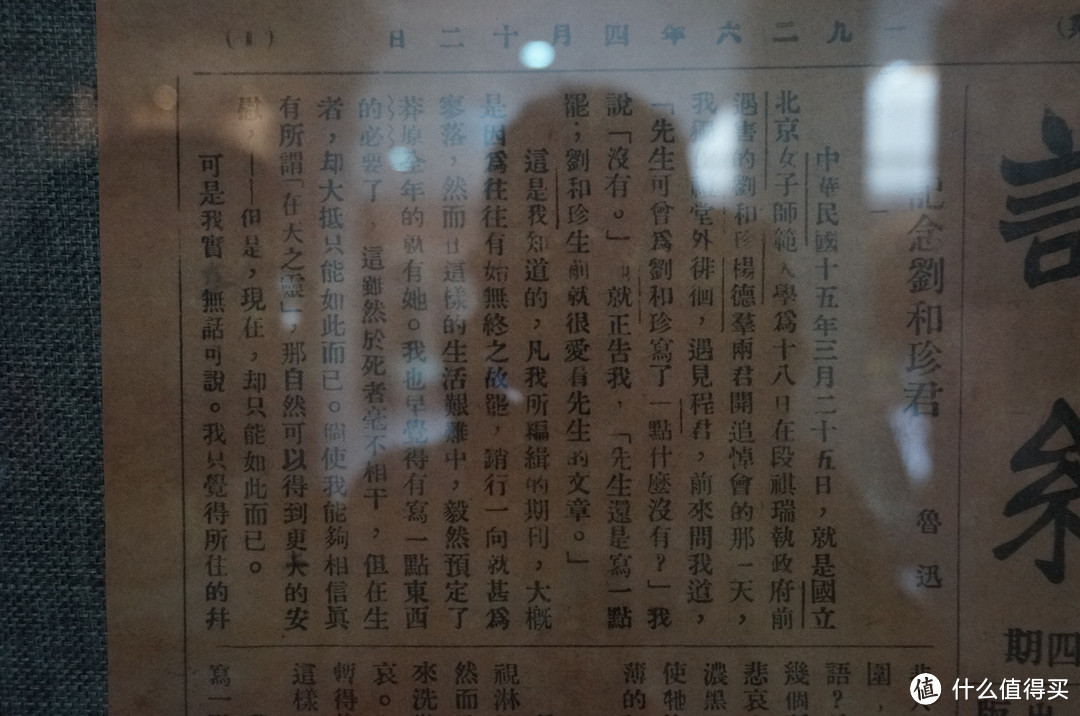 一九二六年四月十二日
語絲
四
期
記念劉和珍君
魯迅
一
中華民國十五年三月二十五日,就是國立
北京女子師範大學爲十八日在段祺瑞執政府前
遇害的劉和珍楊德羣兩君開追悼會的那一天,
我 堂外徘徊,遇見程君,前來問我道,
「先生可曾爲劉和珍寫了一點什麼沒有?」我
說「沒有。」 就正告我,「先生還是寫一點
罷;劉和珍生前就很愛看先生的文章。」
這是我知道的,凡我所編緝的期刊,大概
是因爲往往有始無終之故罷,銷行一向就甚爲
寥落,然而在這樣的生活艱難中,毅然預定了
莽原全年的就有她。我也早覺得有寫一點東西
的必要了,這雖然於死者毫不相干,但在生
者,却大抵只能如此而已。倘使我能夠相信眞
有所謂「在天之靈」,那自然可以得到更大的安
慰,——但是,現在,却只能如此而已。
可是我實 無話可說。我只覺得所住的幷
圍,
語?
幾個
悲哀
濃黑
使牠
薄的
視淋
然而
來洗
哀。
暫得
這樣
寫一
值 什么值得买